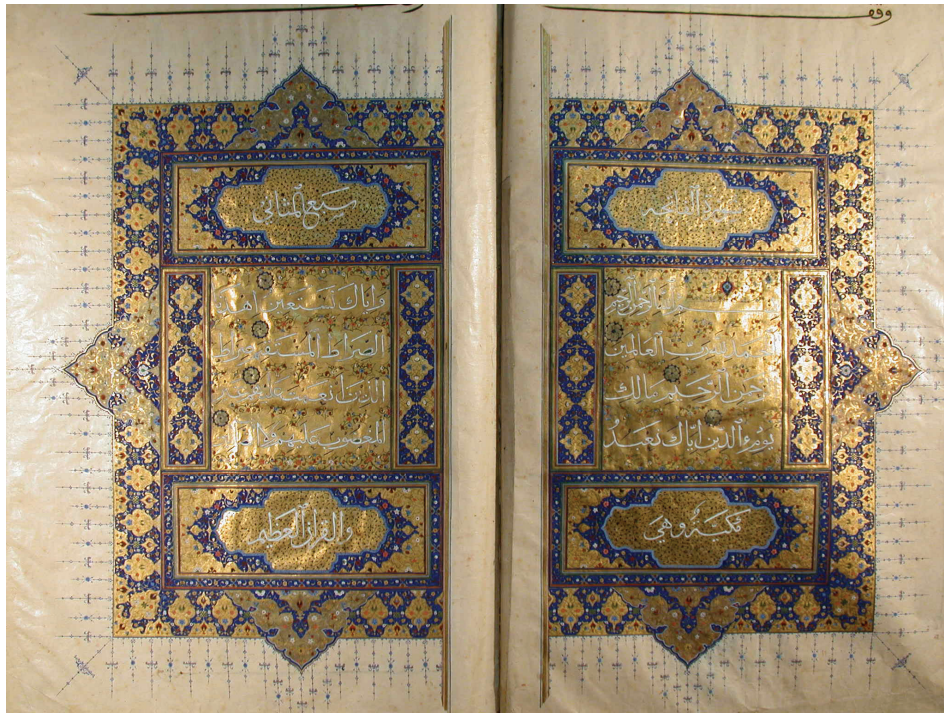 وقف
سورة الفاتحة
الرحمن الرحيم
الحمد لله رب العالمين
الرحمن الرحيم مالك
يوم الدين اياك نعبد
مكية وهي
سبع المثاني
واياك نستعين اهدنا
الصراط المستقيم صراط
الذين انعمت عليهم غير
المغضوب عليهم ولا الضالين
والقرآن العظيم